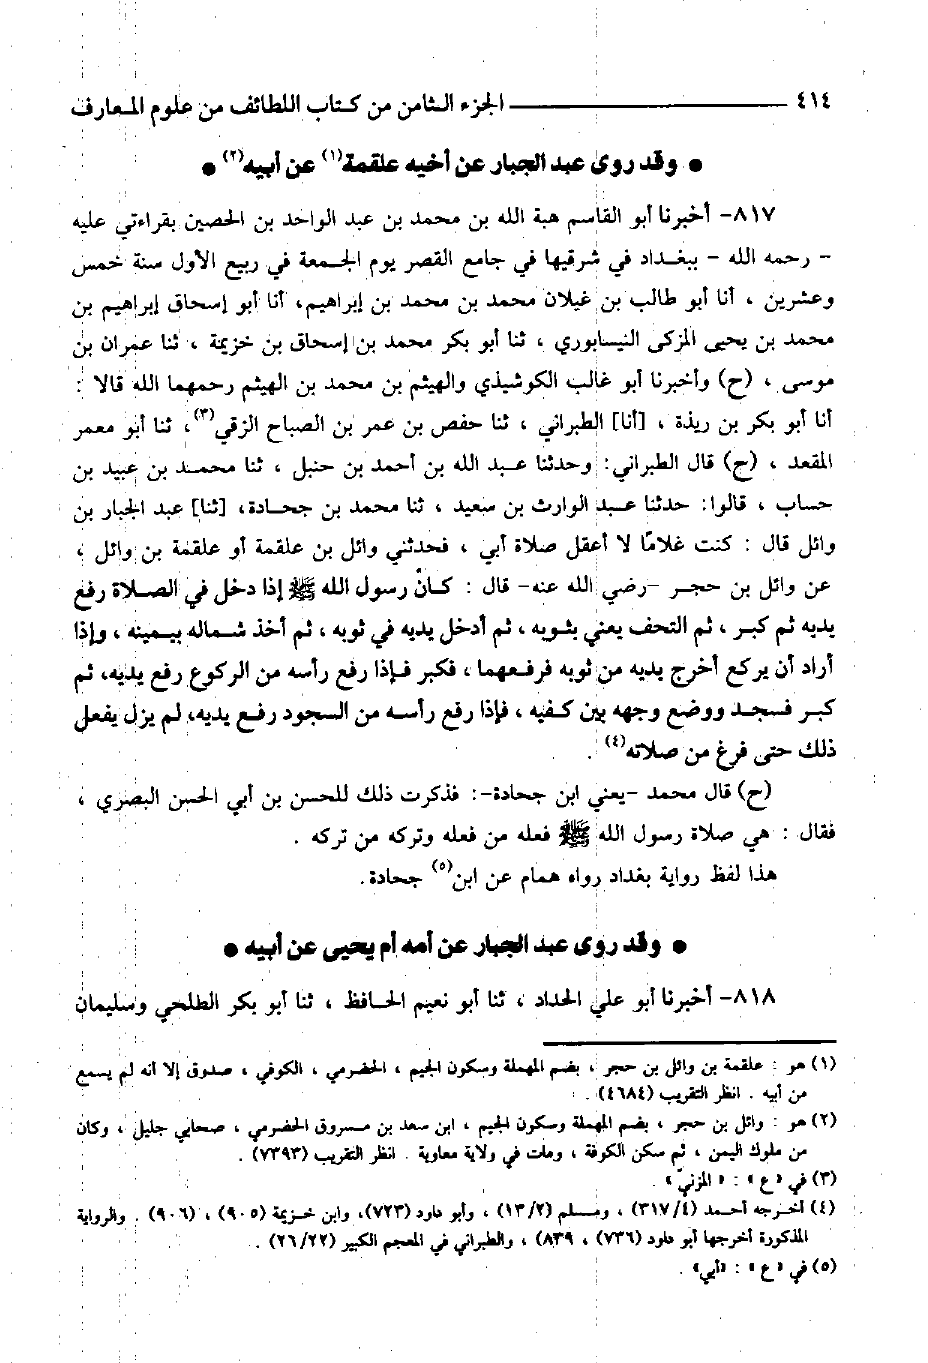 ٤١٤ الجزء الثامن من كتاب اللطائف من علوم المعارف
● وقد روى عبد الجبار عن أخيه علقمة(١) عن أبيه(٢) ●
٨١٧- أخبرنا أبو القاسم هبة الله بن محمد بن عبد الواحد بن الحصين بقراءتي عليه
- رحمه الله - ببغداد في شرقيها في جامع القصر يوم الجمعة في ربيع الأول سنة خمس
وعشرين ، أنا أبو طالب بن غيلان محمد بن محمد بن إبراهيم، أنا أبو إسحاق إبراهيم بن
محمد بن يحيى المزكى النيسابوري ، ثنا أبو بكر محمد بن إسحاق بن خزيمة ، ثنا عمران بن
موسى ، (ح) وأخبرنا أبو غالب الكوشيذي والهيثم بن محمد بن الهيثم رحمهما الله قالا :
أنا أبو بكر بن ريذة ، [أنا] الطبراني ، ثنا حفص بن عمر بن الصباح الزقي(٣)، ثنا أبو معمر
المقعد ، (ح) قال الطبراني: وحدثنا عبد الله بن أحمد بن حنبل ، ثنا محمد بن عبيد بن
حساب ، قالوا: حدثنا عبد الوارث بن سعيد ، ثنا محمد بن جحادة، [ثنا] عبد الجبار بن
وائل قال : كنت غلامًا لا أعقل صلاة أبي ، فحدثني وائل بن علقمة أو علقمة بن وائل ،
عن وائل بن حجر -رضي الله عنه- قال : كان رسول الله ﷺ إذا دخل في الصلاة رفع
يديه ثم كبر ، ثم التحف يعني بثوبه ، ثم أدخل يديه في ثوبه ، ثم أخذ شماله بيمينه ، وإذا
أراد أن يركع أخرج يديه من ثوبه فرفعهما ، فكبر فإذا رفع رأسه من الركوع رفع يديه، ثم
كبر فسجد ووضع وجهه بين كفيه ، فإذا رفع رأسه من السجود رفع يديه، لم يزل يفعل
ذلك حتى فرغ من صلاته(٤) .
(ح) قال محمد -يعني ابن جحادة-: فذكرت ذلك للحسن بن أبي الحسن البصري ،
فقال : هي صلاة رسول الله ﷺ فعله من فعله وتركه من تركه .
هذا لفظ رواية بغداد رواه همام عن ابن(٥) جحادة.
● وقد روى عبد الجبار عن أمه أم يحيى عن أبيه ●
٨١٨- أخبرنا أبو علي الحداد ، ثنا أبو نعيم الحافظ ، ثنا أبو بكر الطلحي وسليمان
(١) هو : علقمة بن وائل بن حجر ، بضم المهملة وسكون الجيم ، الحضرمي ، الكوفي ، صدوق إلا أنه لم يسمع
من أبيه . انظر التقريب (٤٦٨٤) .
(٢) هو : وائل بن حجر ، بضم المهملة وسكون الجيم ، ابن سعد بن مسروق الحضرمي ، صحابي جليل ، وكان
من ملوك اليمن ، ثم سكن الكوفة ، ومات في ولاية معاوية . انظر التقريب (٧٣٩٣) .
(٣) في «ع» : «المزني» .
(٤) أخرجه أحمد (٣١٧/٤) ، ومسلم (١٣/٢) ، وأبو داود (٧٢٣)، وابن خزيمة (٩٠٥) ، (٩٠٦) . والرواية
المذكورة أخرجها أبو داود (٧٣٦) ، (٨٣٩ ، والطبراني في المعجم الكبير (٢٦/٢٢) .
(٥) في «ع» : «أبي» .